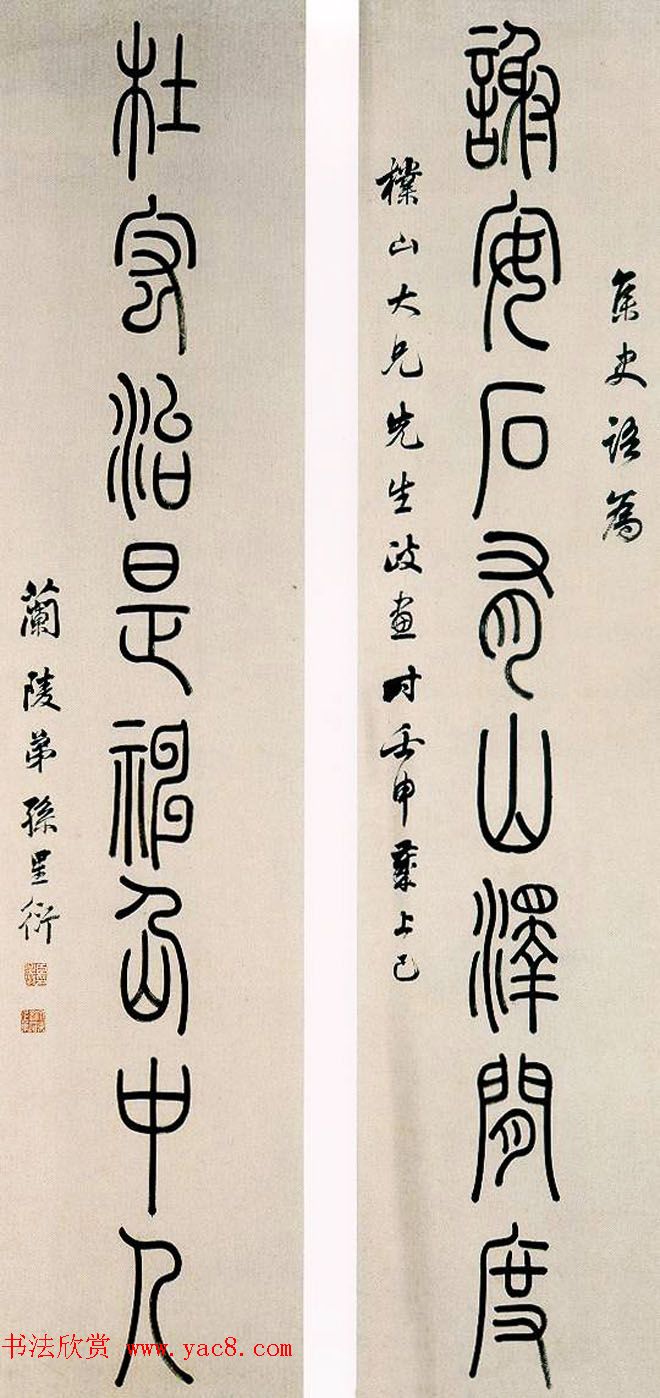 集史語為
謝安石有山澤間度
樸山大兄先生政畫時壬申歲上巳
杜宏治是神仚中人
蘭陵弟孫星衍
书法欣赏 www.yac8.com